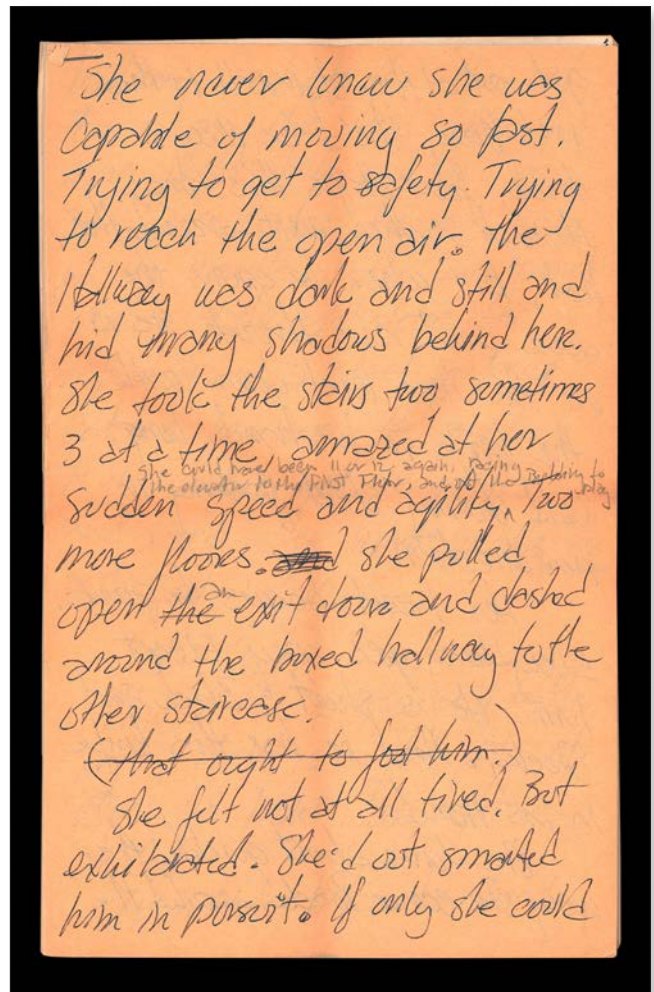 She never knew she was
Capable of moving so fast.
Trying to get to safety. Trying
to reach the open air. the
Hallway was dark and still and
hid many shadows behind her.
She took the stairs two, sometimes
3 at a time, amazed at her
She could have been 11 or 12 again, racing
the elevator to the first floor, and out the Building to play
sudden speed and agility. Two
more floors. and she pulled
an
open the exit door and dashed
around the boxed hallway to the
other staircase.
(that ought to fool him.)
She felt not at all tired. But
exhilarated. She'd out smarted
him in pursuit. If only she could